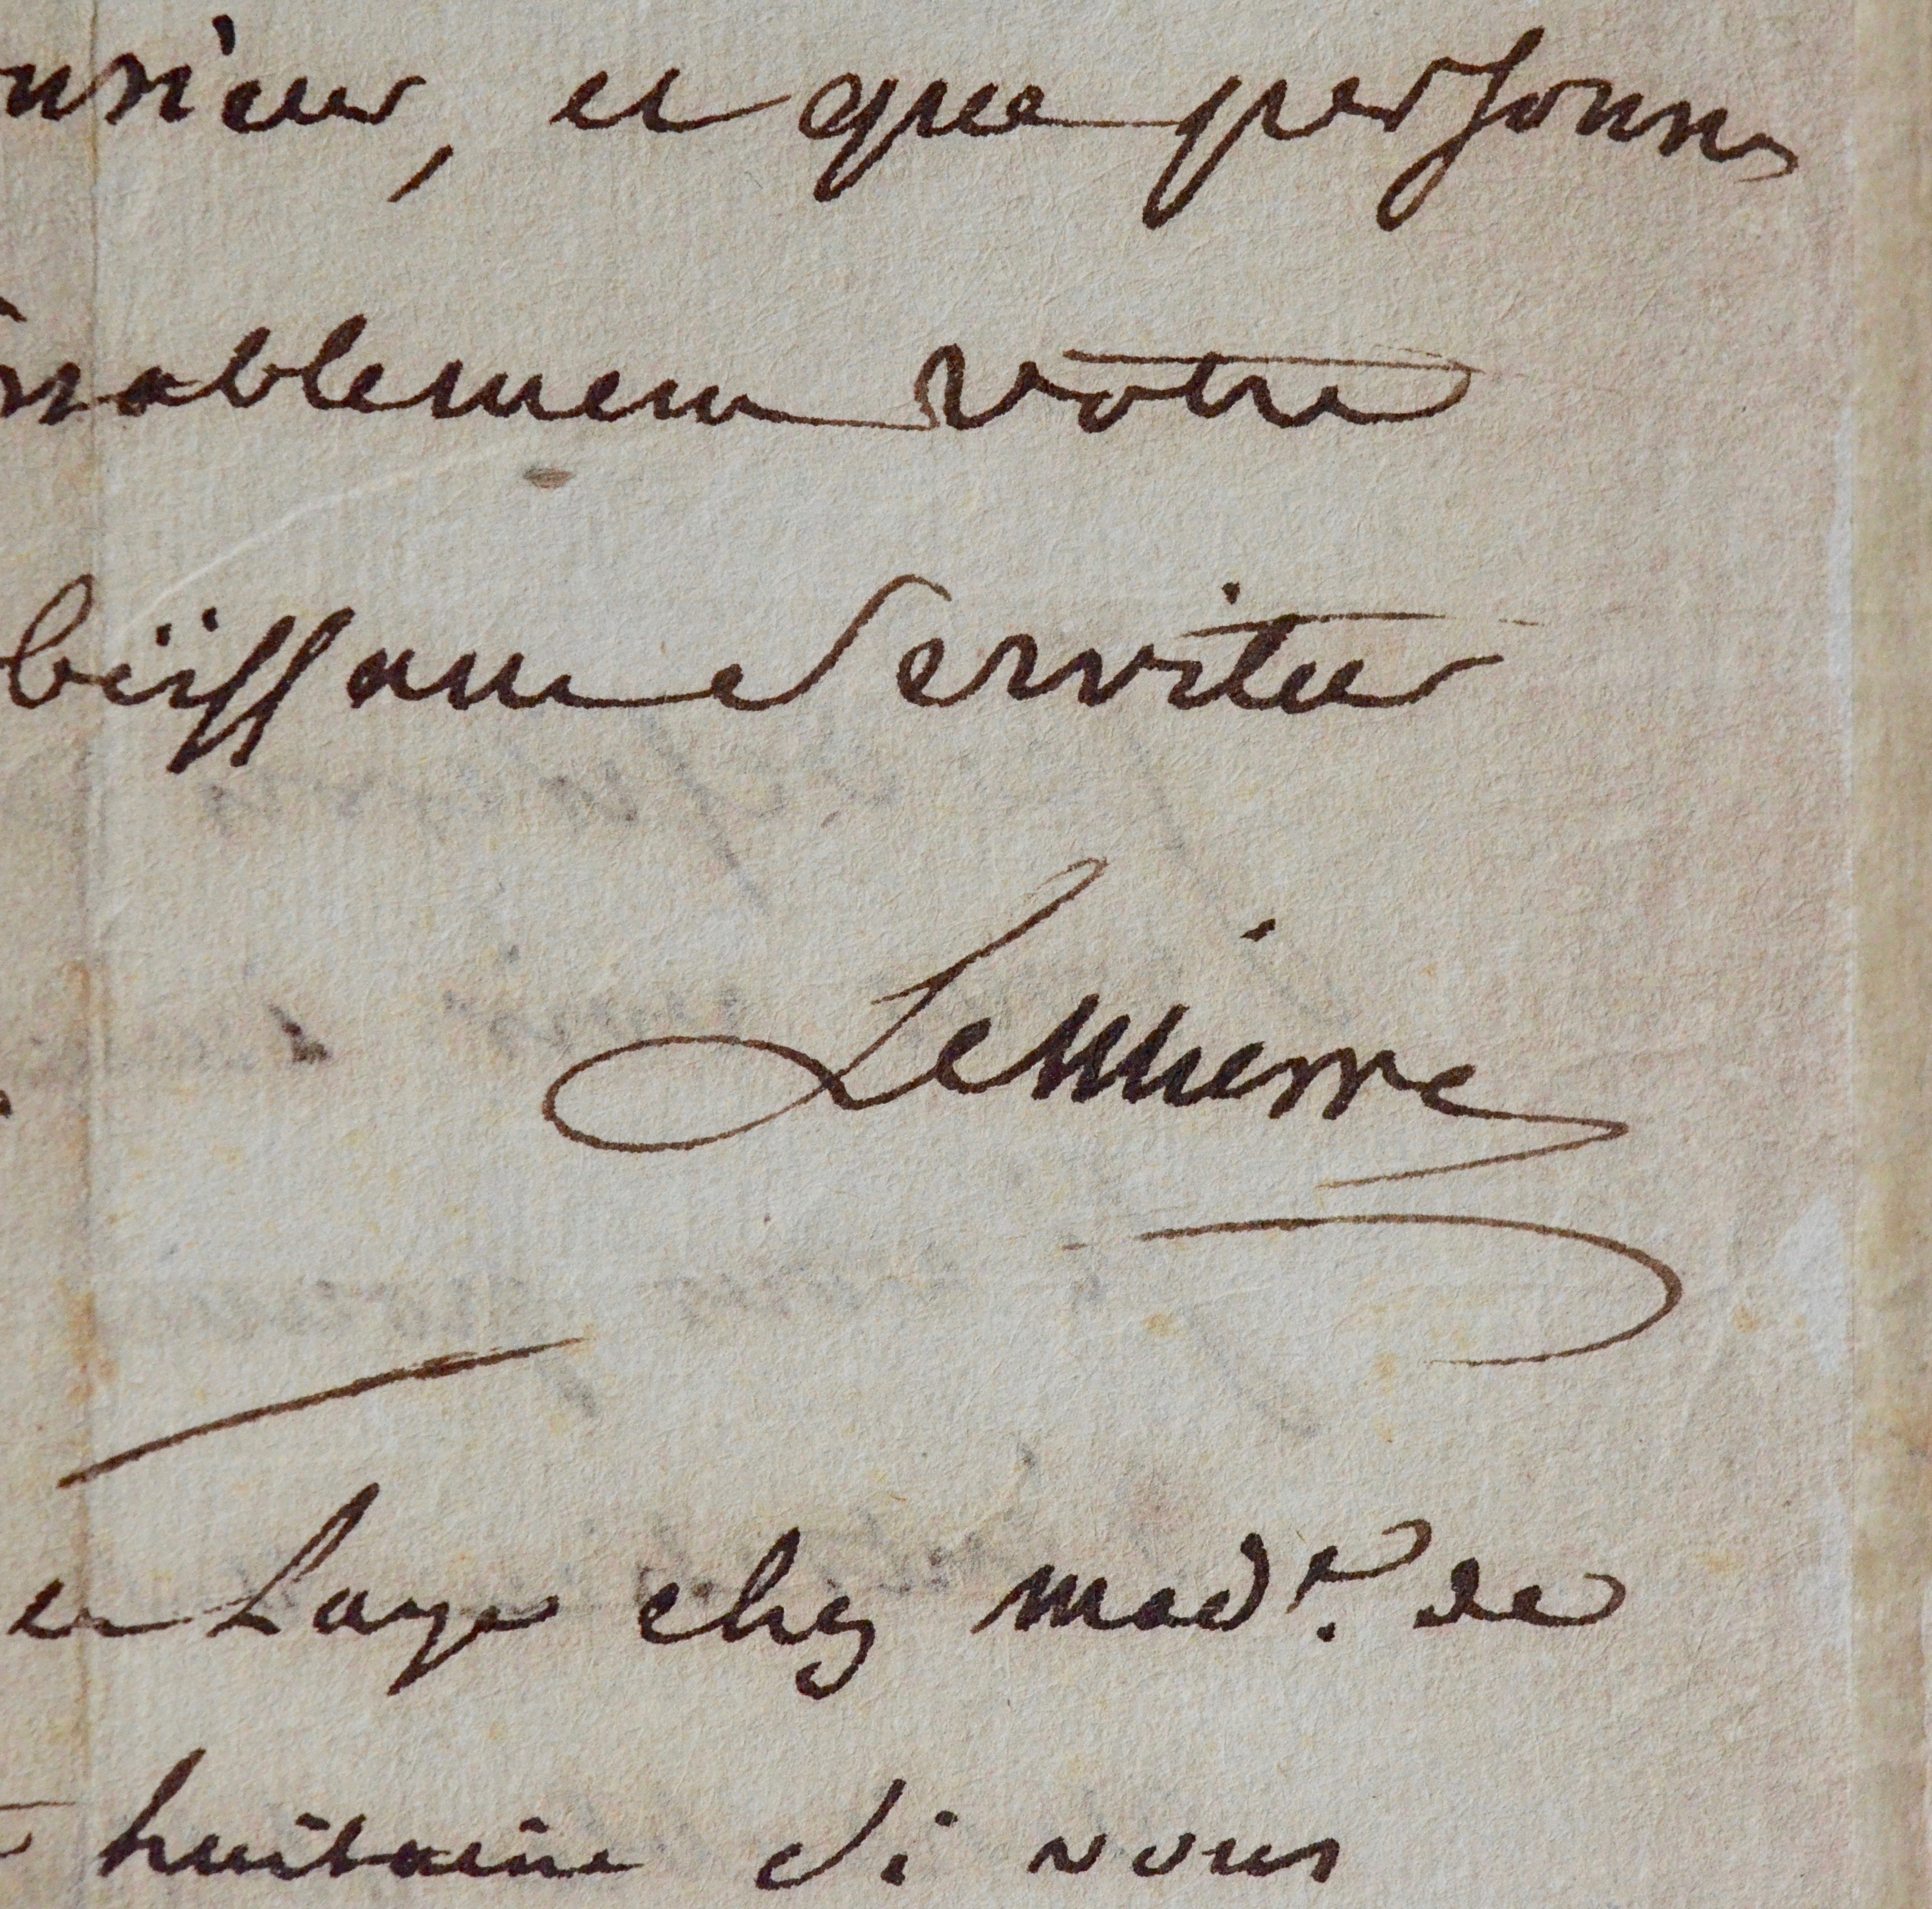 nsieur, et que personne
nablement votre
béissant Serviteur
Lemierre
en Laye chez mad.e de
huitaine si vous